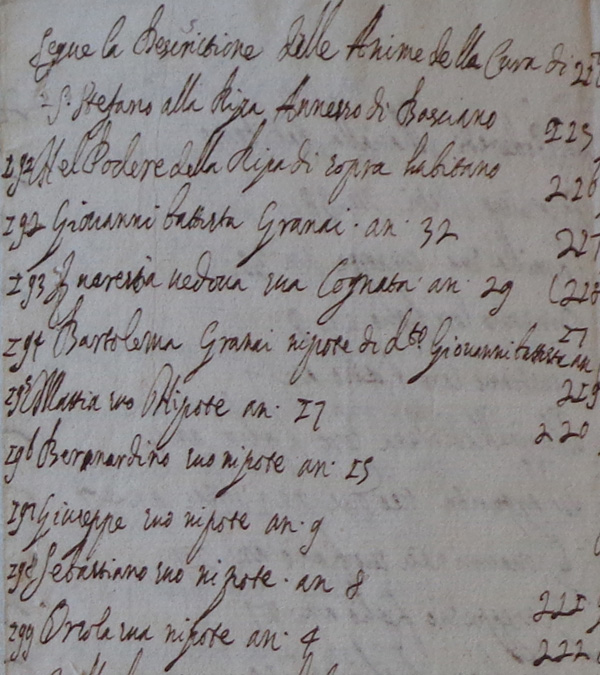 Segue la Descritione delle Anime della Cura di
S. Stefano alla Ripa Annesso di Bosciano
Nel Podere della Ripa di sopra habitano
192 Giovanni battista Granai · an · 32
193 vedova sua Cognata an · 29
194 Bartolema Granai nipote di dto Giovanni battista an
17
195 Mattia suo Nipote an · 17
196 Bernardino suo nipote an · 15
197 Giuseppe suo nipote an · 9
198 Sebastiano suo nipote · an 8
199 Orsola sua nipote an · 4
225
226
227
228
219
220
221
222